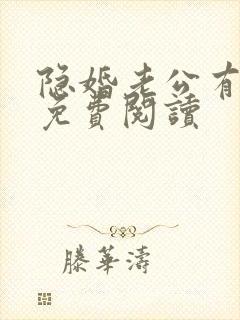 隐婚老公有
免費閱讀
滕華濤